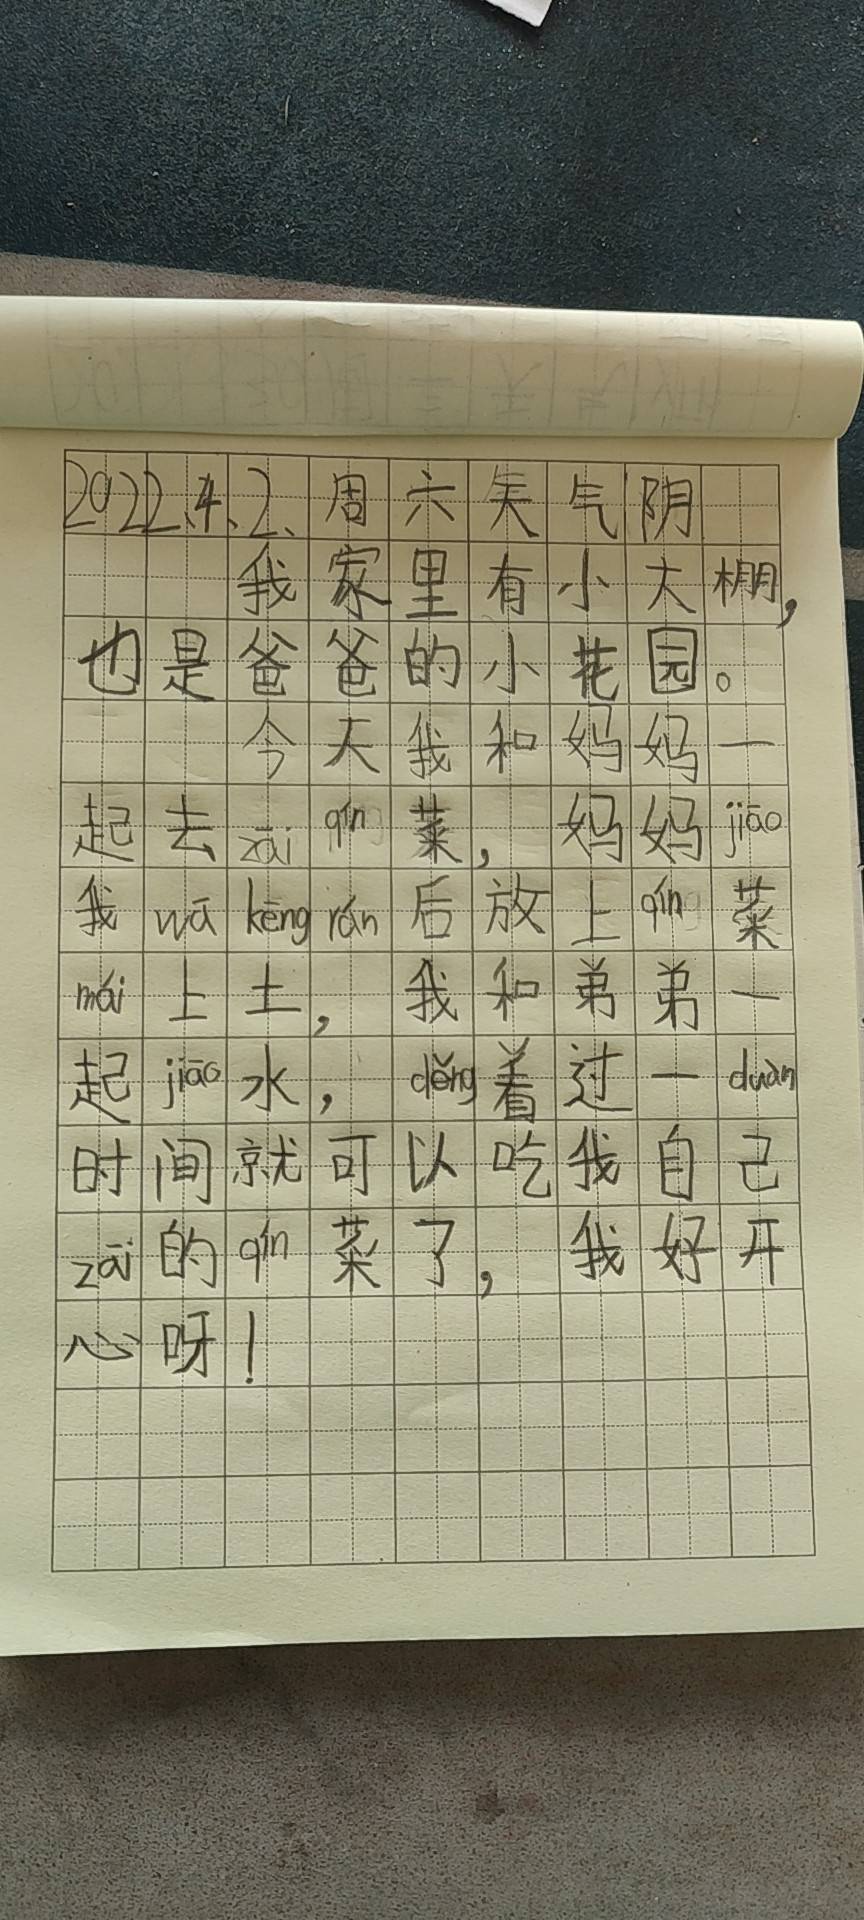 2022.4.2.周六天气阴
我家里有小大棚,
也是爸爸的小花园。
今天我和妈妈一
起去zāi qín菜,妈妈jiāo
我wā kēng rán后放上qín菜
mái上土,我和弟弟一
起jiāo水,děng着过一duàn
时间就可以吃我自己
zāi的qín菜了,我好开
心呀!